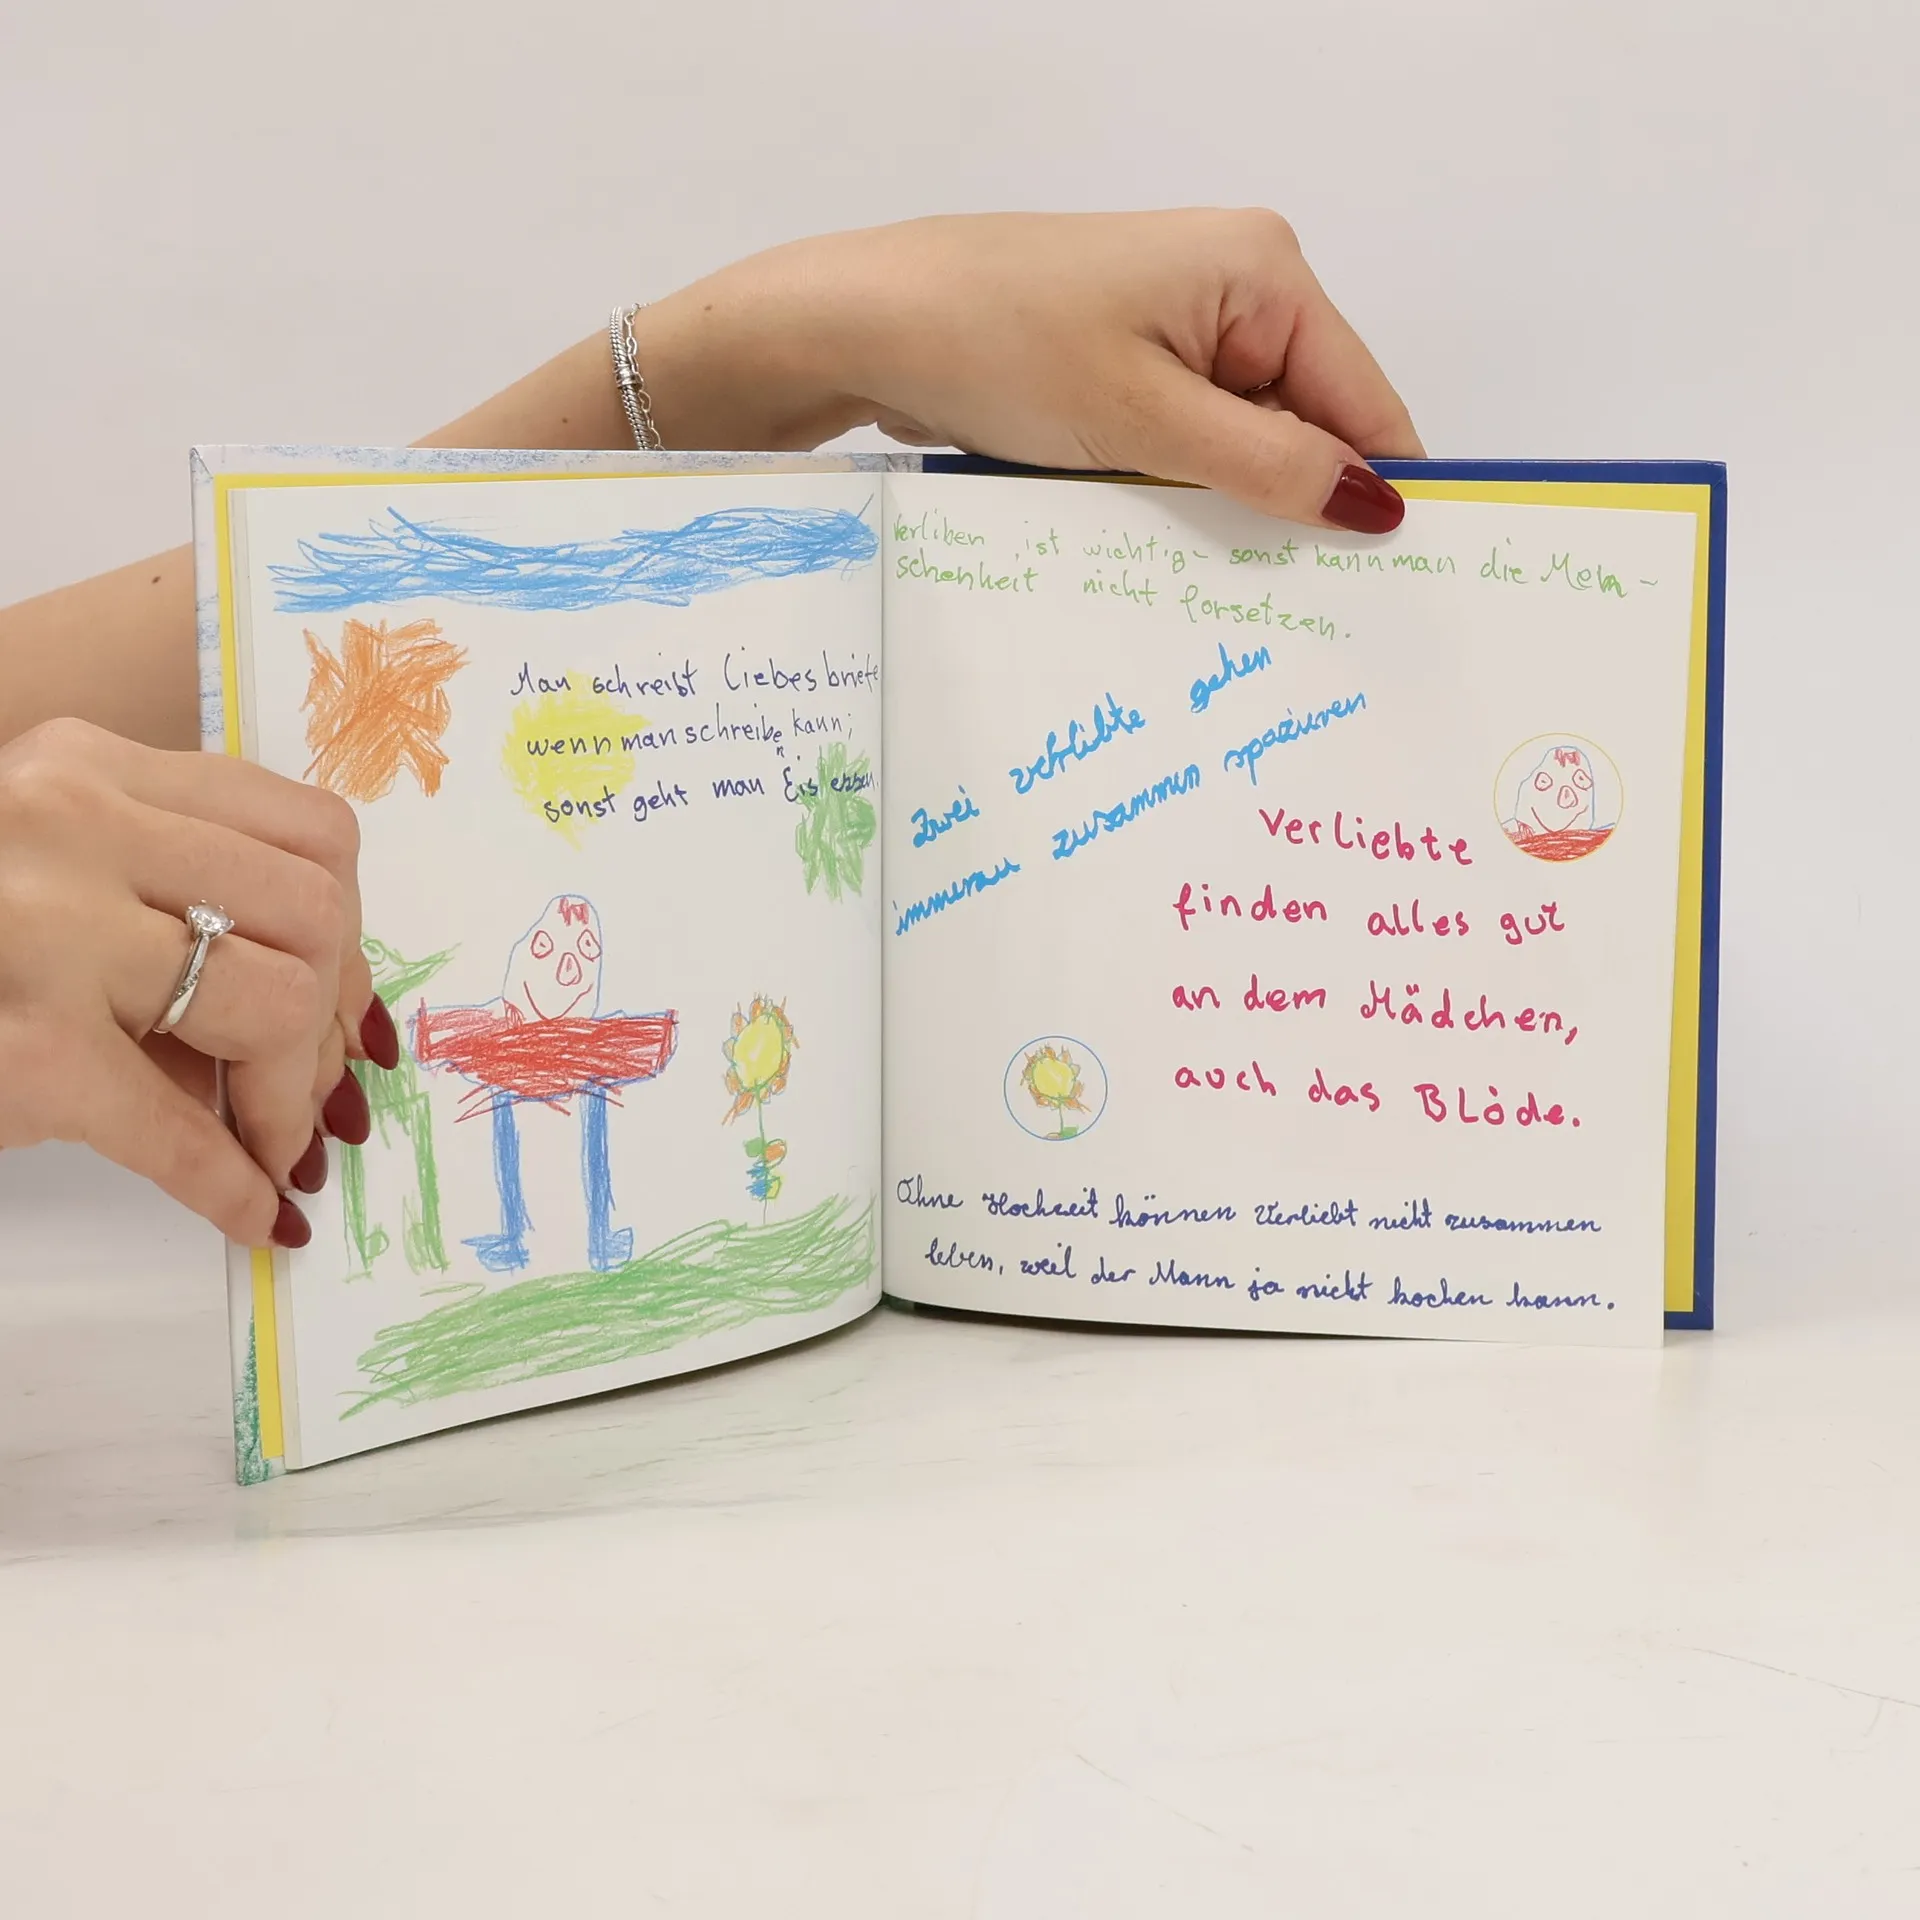 Man schreibt Liebesbriefe
wennmanschreiben kann;
sonst geht man Eis essen.
Verliben ist wichtig - sonst kann man die Men-
schenheit nicht forsetzen.
Zwei verliebte gehen
immerau zusammen spazieren
Verliebte
finden alles gut
an dem Mädchen,
auch das Blöde.
Ohne Hochzeit können Verliebt nicht zusammen
leben, weil der Mann ja nicht kochen kann.